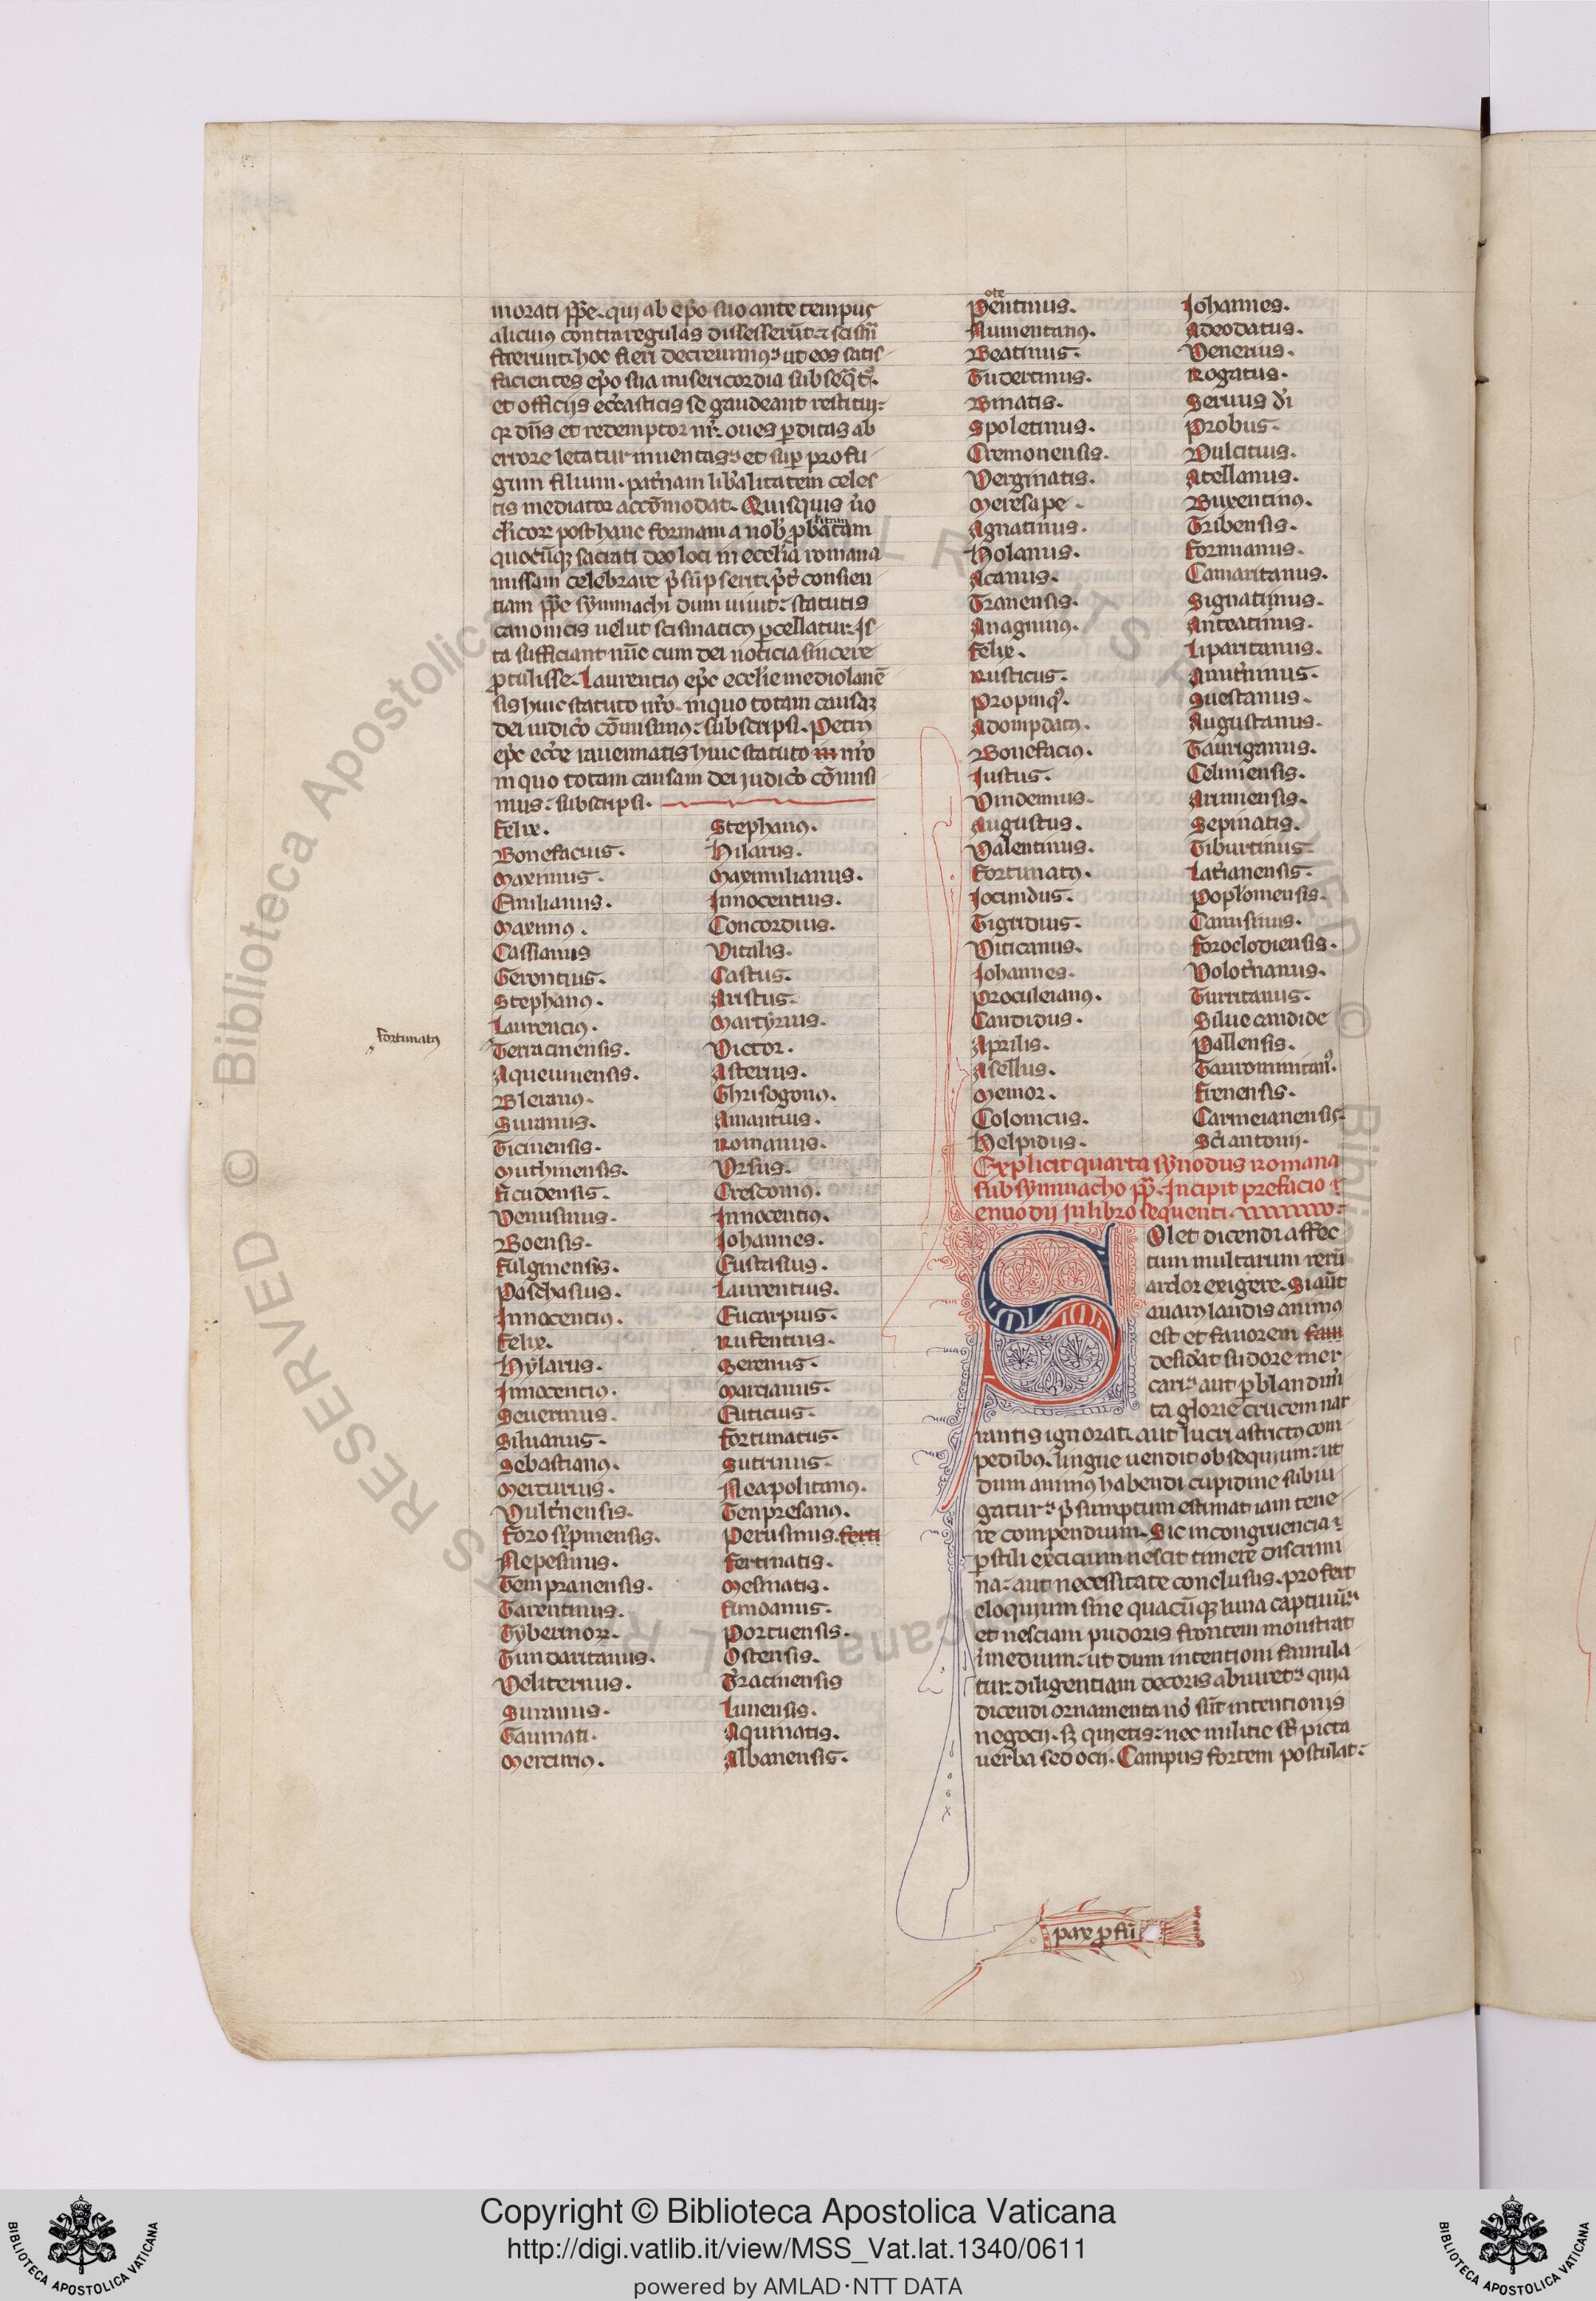 morati p̄p̄e. qui ab ep̄o suo ante tempus
alicuius contra regulas discesserūt. ⁊ scism̄
fecerunt. hoc fieri decreuimus ut eos satis
facientes ep̄o sua misericordia subseq̄tur.
et officijs ecc̄asticis se gaudeant restitui.
qr dn̄s et redemptor nr̄. oues perditas ab
errore letatur inuentas. et sup profu
gum filium. pat̄nam lib̄alitatem celes
tis mediator accōmodat. Quisquis ūo
cl̄icorꝝ post hanc formam a nob̓ plrbatam
quocūqꝫ sacrati deo loci in eccl̄ia romana
missam celebrare p̄sūpserit. p̄t̄ consien
tiam p̄p̄e symmachi dum uiuit. statutis
canonicis uelut scismaticꝰ percellatur. Is
ta sufficiant nūc cum dei noticia sincere
protulisse. Laurencius ep̄c eccl̄ie mediolanē
sis huic statuto nr̄o. in quo totam causaꝫ
dei iudicō cōmisimꝰ. subscripsi. Petrꝰ
ep̄c ecc̄e rauennatis huic statuto in nr̄o
in quo totam causam dei iudicō cōmisi
mus. subscripsi.
Felix. Stephanꝰ.
Bonefacius. Hilarus.
Maximus. Maximilianus.
Emilianus. Innocentius.
Maximꝰ. Concordius.
Cassianus Vitalis.
Gerontius. Castus.
Stephanꝰ. Aristus.
Laurencius. Martyrius.
fortunatꝰ
Terracinensis. Victor.
Aqueuiuensis. Asterius.
Bleranꝰ. Ghrisogonꝰ.
Suranus. Amantius.
Ticinensis. Romanus.
Muthinensis. Vrsus.
Ficudensis. Cresconiꝰ.
Venusinus. Innocentiꝰ.
Boensis. Johannes.
Fulginensis. Eustasius.
Paschasius. Laurentius.
Innocentiꝰ. Eucarpius.
Felix. Rufentius.
Hylarus. Serenus.
Innocentiꝰ. Martianus.
Seuerinus. Euticius.
Siluanus. Fortunatus.
Sebastianꝰ. Sutrinus.
Mercurius. Neapolitanꝰ.
Vult̄nensis. Tenpresanꝰ.
Foro sypniensis. Perusinus. ferti
Nepesinus. Fertinatis.
Tempranensis. Mesinatis.
Tarentinus. Fundanus.
Tyberinorꝝ. Portuensis.
Tundaritanus. Ostensis.
Veliternus. Tr̄acinensis
Suranus. Lunensis.
Gaumati. Aquinatis.
Mercuriꝰ. Albanensis.
ote
Pentinus. Johannes.
Numentanꝰ. Adeodatus.
Beatinus. Venerius.
Tudertinus. Rogatus.
Binatis. Seruus dī
Spoletinus. Probus.
Cremonensis. Dulcitius.
Verginatis. Atellanus.
Meresape. Buxentinꝰ.
Agnatinus. Tribensis.
Nolanus. Formianus.
Acanus. Camaritanus.
Tranensis. Signatinus.
Anagninꝰ. Anteatinus.
Felix. Liparitanus.
Rusticus. Amit̄ninus.
Propinqꝰ. Suestanus.
Adompdatꝰ. Augustanus.
Bonefaciꝰ. Tauriganus.
Justus. Celiniensis.
Vindemius. Ariminensis.
Augustus. Sepinatis.
Valentinus. Tiburtinus.
Fortunatꝰ. Lat̄ianensis.
Jocundus. Poplomensis.
Tigridius. Canusinus.
Viticanus. Foroclodiensis.
Johannes. Volot̄nanus.
Proculeianꝰ. Turritanus.
Candidus. Silue candide
Aprilis. Pallensis.
Asellus. Taurominitanꝰ.
Memor. Firenensis.
Colonicus. Carmeianensis.
Helpidus. Sc̄i antonij.
Explicit quarta synodus romana
sub symmacho p̄p̄. Incipit prefacio ⁊
enuodij in libro sequenti.
Solet dicendi affec
tum multarum rerū
ardor exigere. Si aūt
auarꝰ laudis animꝰ
est et fauorem fau
desid̄at sudore mer
cari. aut per blandim̄
ta glorie crucem nar
rantis ignorat. aut lucri astrictꝰ com
pedibꝰ. lingue uendit obsequium. ut
dum animꝰ habendi cupidine subiu
gatur. p̄sumptum estimat iam tene
re compendium. Sic incongruencia ⁊
per stili exercicium nescit timere discrimi
na. aut necessitate conclusus. profert
eloquium sine quacūqꝫ luna captiuū.
et nesciam pudoris frontem monstrat
i medium. ut dum intentioni famula
tur. diligentiam decoris abiuret. quia
dicendi ornamenta nō sūt intentionis
negocij. sꝫ quietis. nec militie st̄ picta
uerba sed ocij. Campus fortem postulat.
pax p̱ fū
Copyright © Biblioteca Apostolica Vaticana
http://digi.vatlib.it/view/MSS_Vat.lat.1340/0611
powered by AMLAD·NTT DATA
BIBLIOTECA APOSTOLICA VATICANA
BIBLIOTECA APOSTOLICA VATICANA